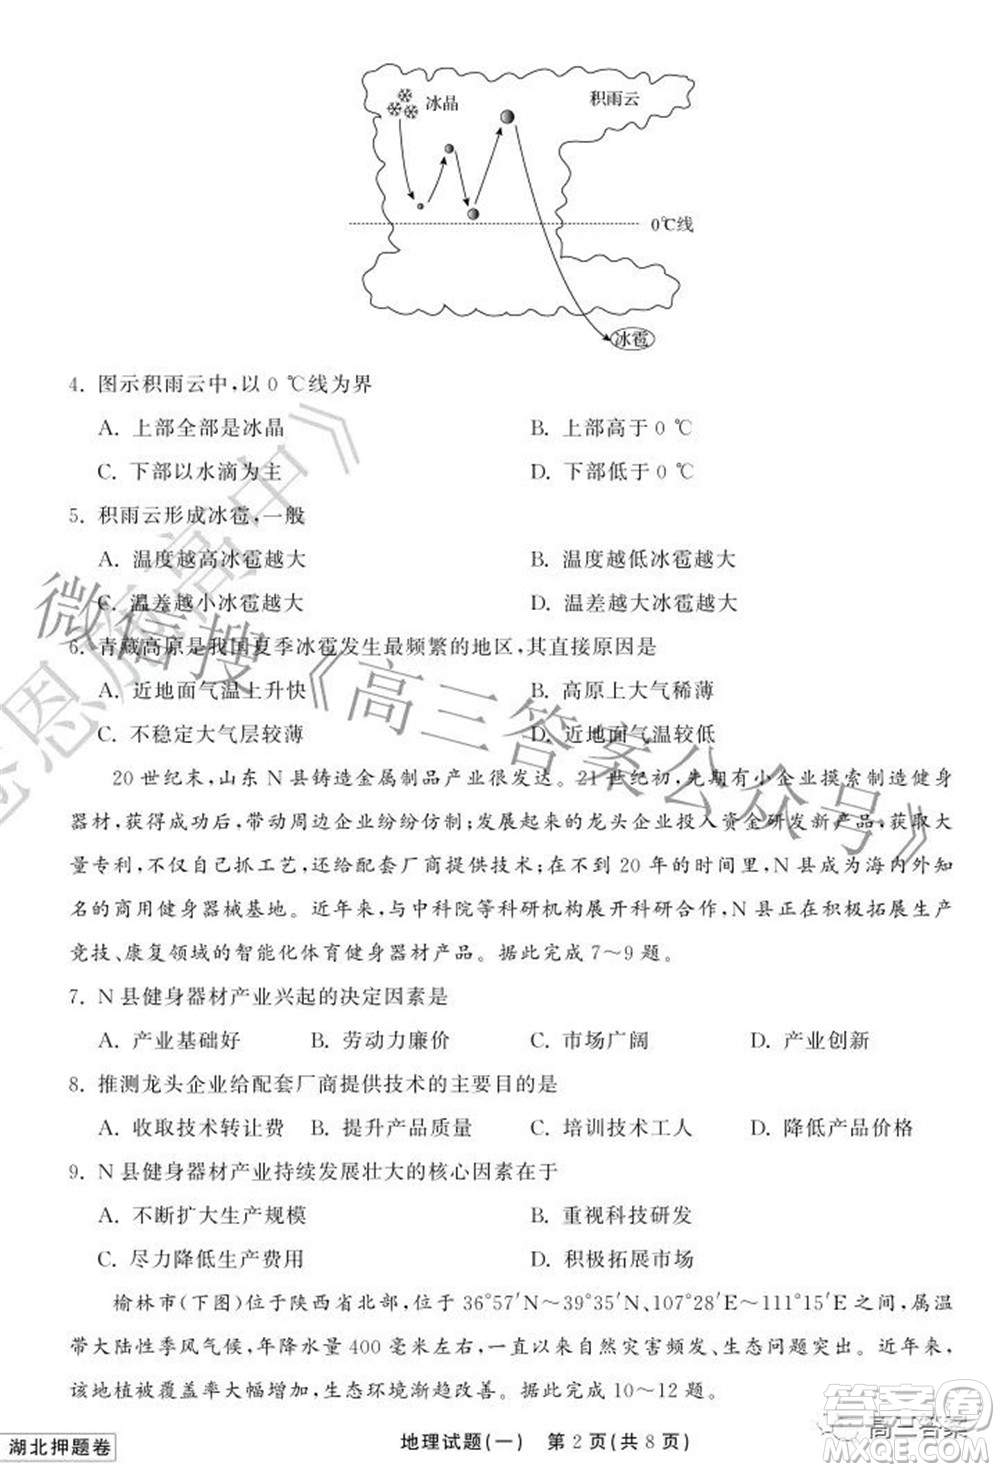 冰晶
积雨云
0℃线
冰雹
4. 图示积雨云中,以 0 ℃线为界
A. 上部全部是冰晶
B. 上部高于 0 ℃
C. 下部以水滴为主
D. 下部低于 0 ℃
5. 积雨云形成冰雹,一般
A. 温度越高冰雹越大
B. 温度越低冰雹越大
C. 温差越小冰雹越大
D. 温差越大冰雹越大
6. 青藏高原是我国夏季冰雹发生最频繁的地区,其直接原因是
A. 近地面气温上升快
B. 高原上大气稀薄
C. 不稳定大气层较薄
D. 近地面气温较低
20 世纪末,山东 N 县铸造金属制品产业很发达。21 世纪初,先期有小企业摸索制造健身
器材,获得成功后,带动周边企业纷纷仿制;发展起来的龙头企业投入资金研发新产品,获取大
量专利,不仅自己抓工艺,还给配套厂商提供技术;在不到 20 年的时间里,N 县成为海内外知
名的商用健身器械基地。近年来,与中科院等科研机构展开科研合作,N 县正在积极拓展生产
竞技、康复领域的智能化体育健身器材产品。据此完成 7～9 题。
7. N 县健身器材产业兴起的决定因素是
A. 产业基础好
B. 劳动力廉价
C. 市场广阔
D. 产业创新
8. 推测龙头企业给配套厂商提供技术的主要目的是
A. 收取技术转让费
B. 提升产品质量
C. 培训技术工人
D. 降低产品价格
9. N 县健身器材产业持续发展壮大的核心因素在于
A. 不断扩大生产规模
B. 重视科技研发
C. 尽力降低生产费用
D. 积极拓展市场
榆林市(下图)位于陕西省北部,位于 36°57′N～39°35′N、107°28′E～111°15′E 之间,属温
带大陆性季风气候,年降水量 400 毫米左右,一直以来自然灾害频发、生态问题突出。近年来,
该地植被覆盖率大幅增加,生态环境渐趋改善。据此完成 10～12 题。
湖北押题卷
地理试题(一) 第 2 页(共 8 页)
微信搜《高三答案公众号》
高三答案
答案圈
MXQE.COM